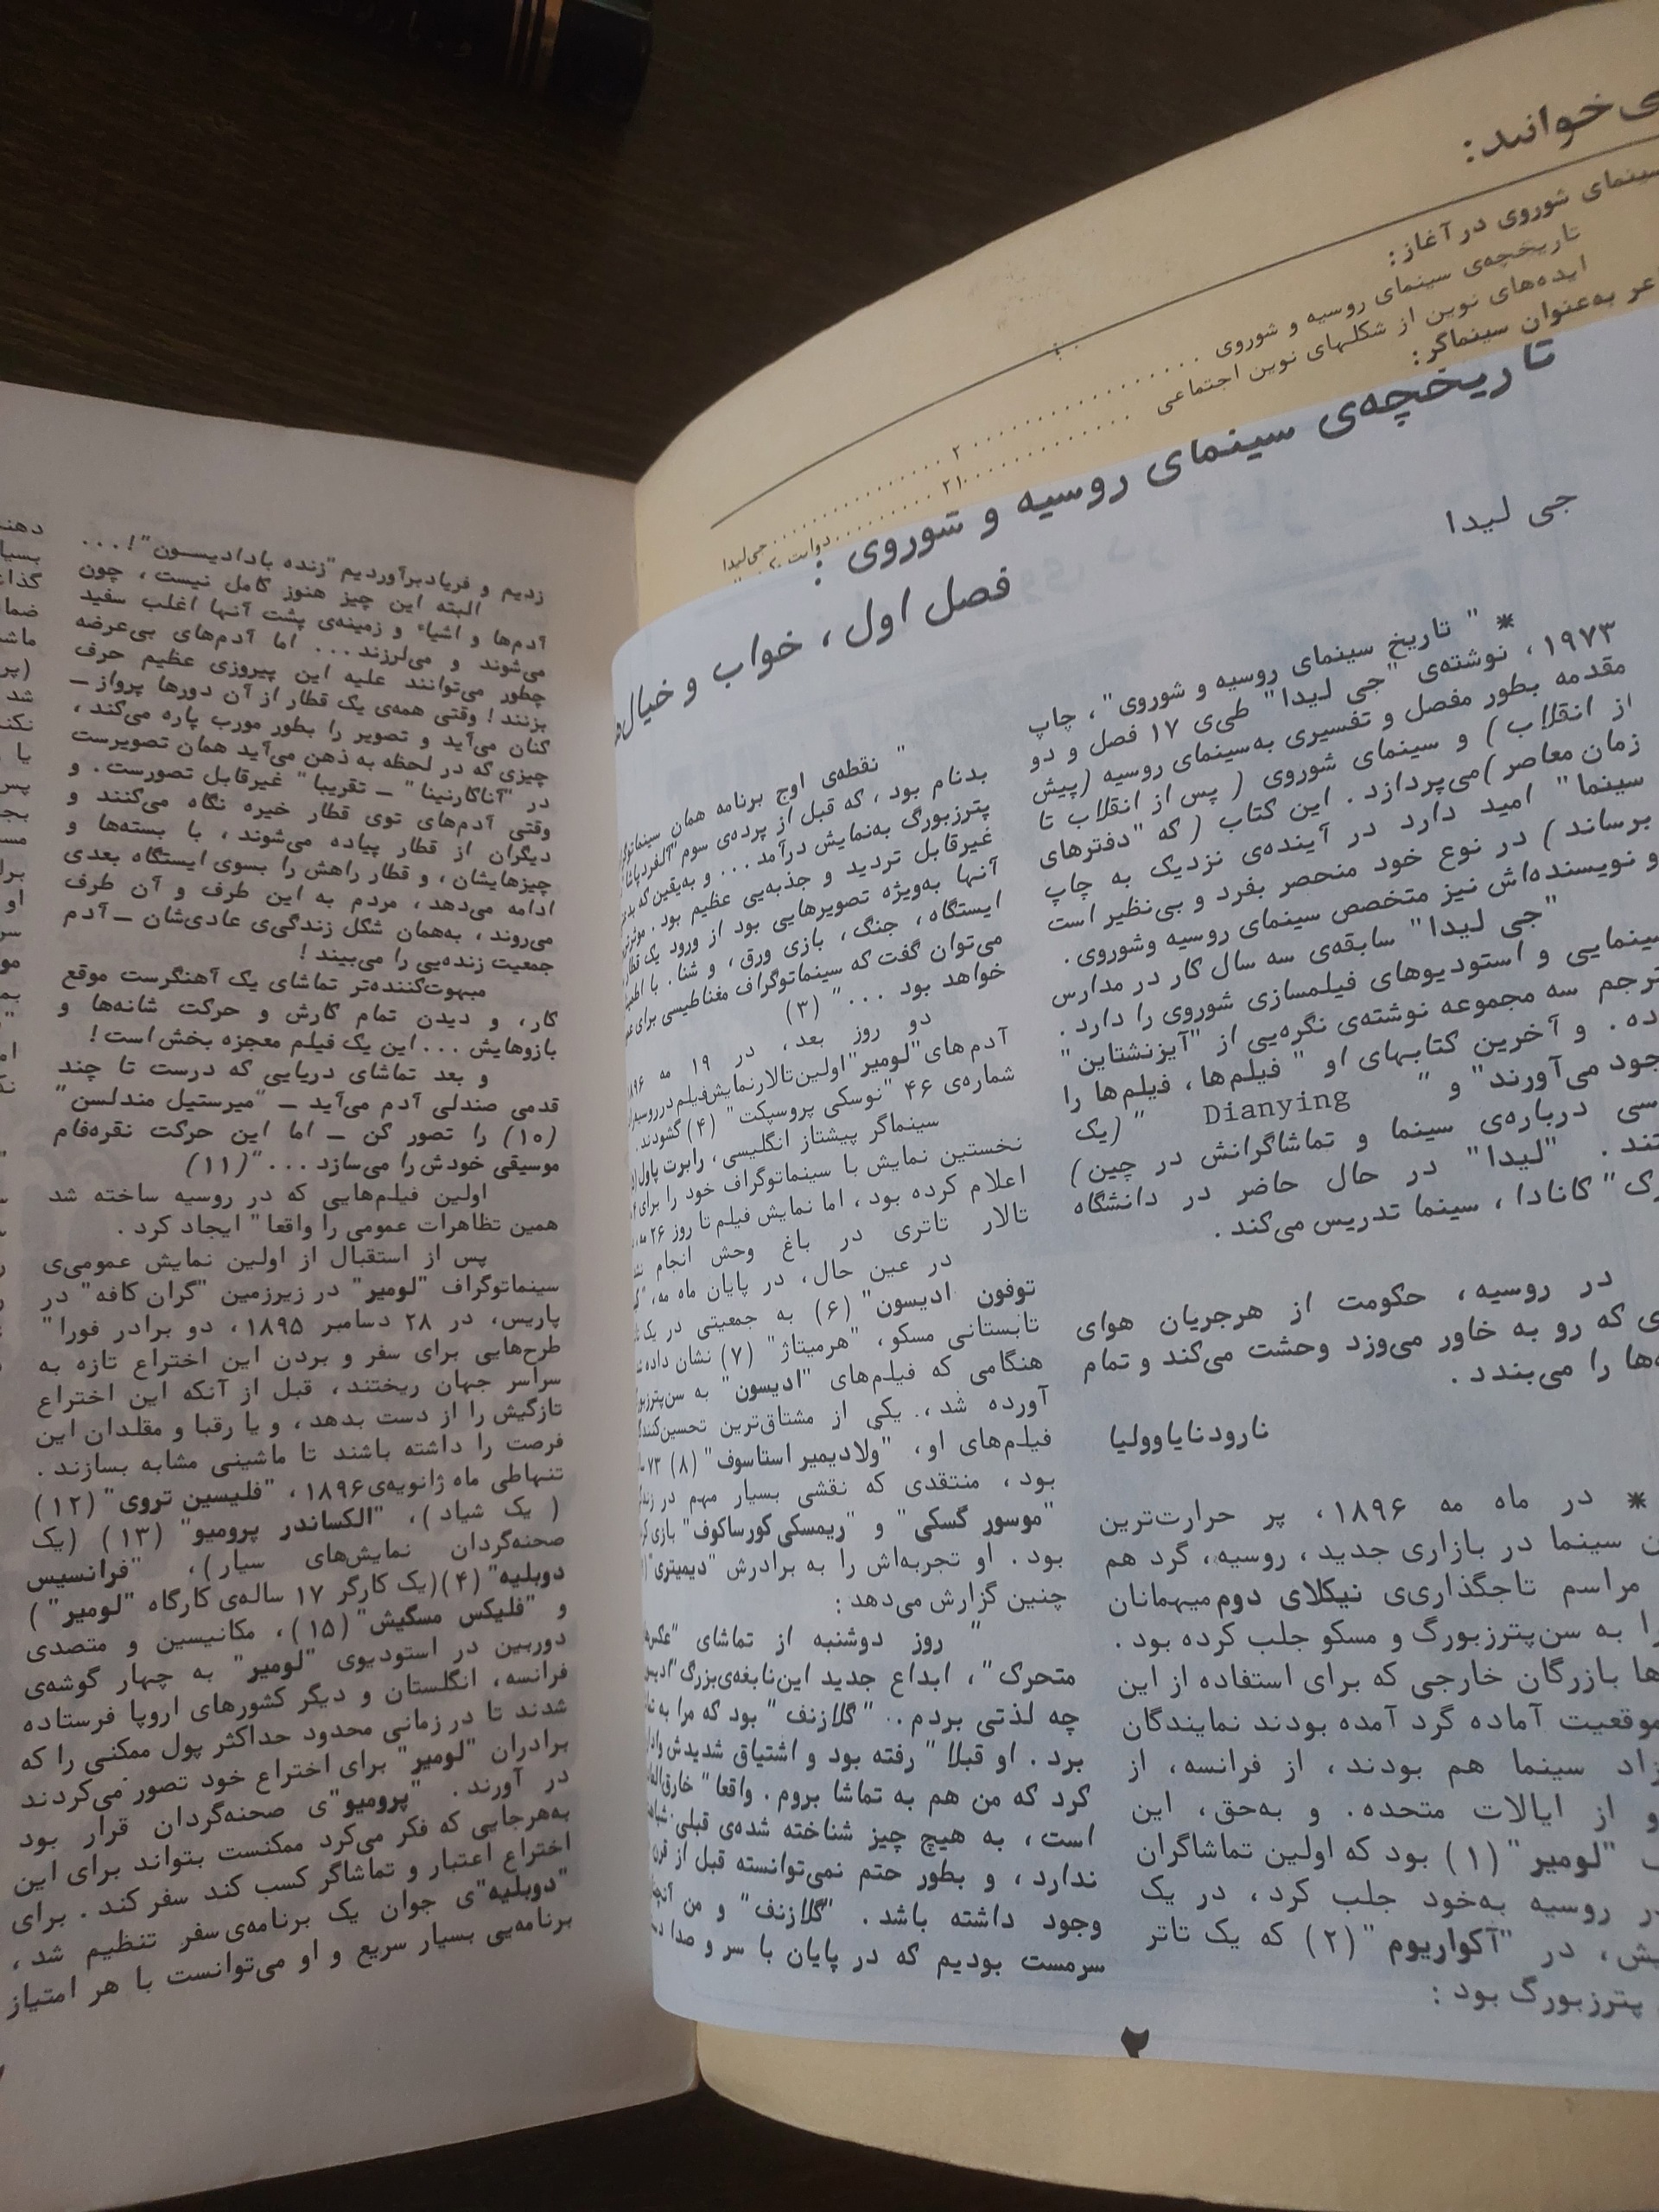 ی‌خوانید:
سینمای شوروی در آغاز:
تاریخچه‌ی سینمای روسیه و شوروی . . . . . . . . . . . . . . . ۲ . . . . . . . . . . . . . . . جی‌لیدا
ایده‌های نوین از شکلهای نوین اجتماعی . . . . . . . . . . . . ۲۱ . . . . . . . . . .
به‌عنوان سینماگر:
تاریخچه‌ی سینمای روسیه و شوروی :
جی لیدا
فصل اول ، خواب و خیال‌ه
* " تاریخ سینمای روسیه و شوروی" ، چاپ
۱۹۷۳ ، نوشته‌ی "جی لیدا" طی‌ی ۱۷ فصل و دو
مقدمه بطور مفصل و تفسیری به‌سینمای روسیه (پیش
از انقلاب ) و سینمای شوروی ( پس از انقلاب تا
زمان معاصر )می‌پردازد . این کتاب ( که "دفترهای
سینما" امید دارد در آینده‌ی نزدیک به چاپ
برساند ) در نوع خود منحصر بفرد و بی‌نظیر است
و نویسنده‌اش نیز متخصص سینمای روسیه وشوروی .
"جی لیدا" سابقه‌ی سه سال کار در مدارس
سینمایی و استودیوهای فیلمسازی شوروی را دارد .
مترجم سه مجموعه نوشته‌ی نگره‌یی از "آیزنشتاین"
ده . و آخرین کتابهای او " فیلم‌ها ، فیلم‌ها را
وجود می‌آورند" و " Dianying " (یک
سی درباره‌ی سینما و تماشاگرانش در چین )
ند . "لیدا" در حال حاضر در دانشگاه
رک" کانادا ، سینما تدریس می‌کند .
در روسیه ، حکومت از هرجریان هوای
ی که رو به خاور می‌وزد وحشت می‌کند و تمام
ه‌ها را می‌بندد .
نارودنایاوولیا
* در ماه مه ۱۸۹۶ ، پر حرارت‌ترین
ن سینما در بازاری جدید ، روسیه ، گرد هم
مراسم تاجگذاری‌ی نیکلای دوم میهمانان
را به سن‌پترزبورگ و مسکو جلب کرده بود .
ها بازرگان خارجی که برای استفاده از این
موقعیت آماده گرد آمده بودند نمایندگان
زاد سینما هم بودند ، از فرانسه ، از
و از ایالات متحده . و به‌حق ، این
"لومیر" (۱) بود که اولین تماشاگران
در روسیه به‌خود جلب کرد ، در یک
یش ، در "آکواریوم" (۲) که یک تاتر
پترزبورگ بود :
" نقطه‌ی اوج برنامه همان سینماتوگر
بدنام بود ، که قبل از پرده‌ی سوم "آلفردپاشا
پترزبورگ به‌نمایش درآمد . . . و به‌یقین که بد
غیرقابل تردید و جذبه‌یی عظیم بود . موثرتر
آنها به‌ویژه تصویرهایی بود از ورود یک قطار
ایستگاه ، جنگ ، بازی ورق ، و شنا . با اطمی
می‌توان گفت که سینماتوگراف مغناطیسی برای
خواهد بود . . . " (۳)
دو روز بعد ، در ۱۹ مه ۱۸۹۶
آدم‌های "لومیر" اولین‌تالارنمایش‌فیلم درروسیه
شماره‌ی ۴۶ "نوسکی پروسپکت" (۴) گشودند .
سینماگر پیشتاز انگلیسی ، رابرت پاول
نخستین نمایش با سینماتوگراف خود را برای
اعلام کرده بود ، اما نمایش فیلم تا روز ۲۶ مه
تالار تاتری در باغ وحش انجام نشد
در عین حال ، در پایان ماه مه ،
توفون ادیسون" (۶) به جمعیتی در یک
تابستانی مسکو ، "هرمیتاژ" (۷) نشان داده
هنگامی که فیلم‌های "ادیسون" به سن‌پترزبو
آورده شد ، یکی از مشتاق‌ترین تحسین‌کنندگ
فیلم‌های او ، "ولادیمیر استاسوف" (۸) ۷۳
بود ، منتقدی که نقشی بسیار مهم در زندگ
"موسور گسکی" و "ریمسکی کورساکوف" بازی ک
بود . او تجربه‌اش را به برادرش "دیمیتری"
چنین گزارش می‌دهد :
" روز دوشنبه از تماشای "عکس‌ه
متحرک" ، ابداع جدید این‌نابغه‌ی‌بزرگ "ادیس
چه لذتی بردم . . "گلازنف" بود که مرا به
برد . او قبلا" رفته بود و اشتیاق شدیدش وادا
کرد که من هم به تماشا بروم . واقعا" خارق‌العا
است ، به هیچ چیز شناخته شده‌ی قبلی شباهت
ندارد ، و بطور حتم نمی‌توانسته قبل از قرن
وجود داشته باشد . "گلازنف" و من آنچ
سرمست بودیم که در پایان با سر و صدا
۲
زدیم و فریادبرآوردیم "زنده باد‌ادیسون" ! . . .
البته این چیز هنوز کامل نیست ، چون
آدم‌ها و اشیاء و زمینه‌ی پشت آنها اغلب سفید
می‌شوند و می‌لرزند . . . اما آدم‌های بی‌عرضه
چطور می‌توانند علیه این پیروزی عظیم حرف
بزنند ! وقتی همه‌ی یک قطار از آن دورها پرواز —
کنان می‌آید و تصویر را بطور مورب پاره می‌کند ،
چیزی که در لحظه به ذهن می‌آید همان تصویرست
در "آناکارنینا" — تقریبا" غیرقابل تصورست . و
وقتی آدم‌های توی قطار خیره نگاه می‌کنند و
دیگران از قطار پیاده می‌شوند ، با بسته‌ها و
چیزهایشان ، و قطار راهش را بسوی ایستگاه بعدی
ادامه می‌دهد ، مردم به این طرف و آن طرف
می‌روند ، به‌همان شکل زندگی‌ی عادی‌شان — آدم
جمعیت زنده‌یی را می‌بیند !
مبهوت‌کننده‌تر تماشای یک آهنگرست موقع
کار ، و دیدن تمام کارش و حرکت شانه‌ها و
بازوهایش . . . این یک فیلم معجزه بخش است !
و بعد تماشای دریایی که درست تا چند
قدمی صندلی آدم می‌آید — "میرستیل مندلسن"
(۱۰) را تصور کن — اما این حرکت نقره‌فام
موسیقی خودش را می‌سازد . . . " (۱۱)
اولین فیلم‌هایی که در روسیه ساخته شد
همین تظاهرات عمومی را واقعا" ایجاد کرد .
پس از استقبال از اولین نمایش عمومی‌ی
سینماتوگراف "لومیر" در زیرزمین "گران کافه" در
پاریس ، در ۲۸ دسامبر ۱۸۹۵ ، دو برادر فورا"
طرح‌هایی برای سفر و بردن این اختراع تازه به
سراسر جهان ریختند ، قبل از آنکه این اختراع
تازگیش را از دست بدهد ، و یا رقبا و مقلدان این
فرصت را داشته باشند تا ماشینی مشابه بسازند .
تنهاطی ماه ژانویه‌ی ۱۸۹۶ ، "فلیسین تروی" (۱۲)
( یک شیاد ) ، "الکساندر پرومیو" (۱۳) (یک
صحنه‌گردان نمایش‌های سیار) ، "فرانسیس
دوبلیه" (۴)(یک کارگر ۱۷ ساله‌ی کارگاه "لومیر" )
و "فلیکس مسگیش" (۱۵) ، مکانیسین و متصدی
دوربین در استودیوی "لومیر" به چهار گوشه‌ی
فرانسه ، انگلستان و دیگر کشورهای اروپا فرستاده
شدند تا در زمانی محدود حداکثر پول ممکنی را که
برادران "لومیر" برای اختراع خود تصور می‌کردند
در آورند . "پرومیو"ی صحنه‌گردان قرار بود
به‌هرجایی که فکر می‌کرد ممکنست بتواند برای این
اختراع اعتبار و تماشاگر کسب کند سفر کند . برای
"دوبلیه"ی جوان یک برنامه‌ی سفر تنظیم شد ،
برنامه‌یی بسیار سریع و او می‌توانست با هر امتیاز